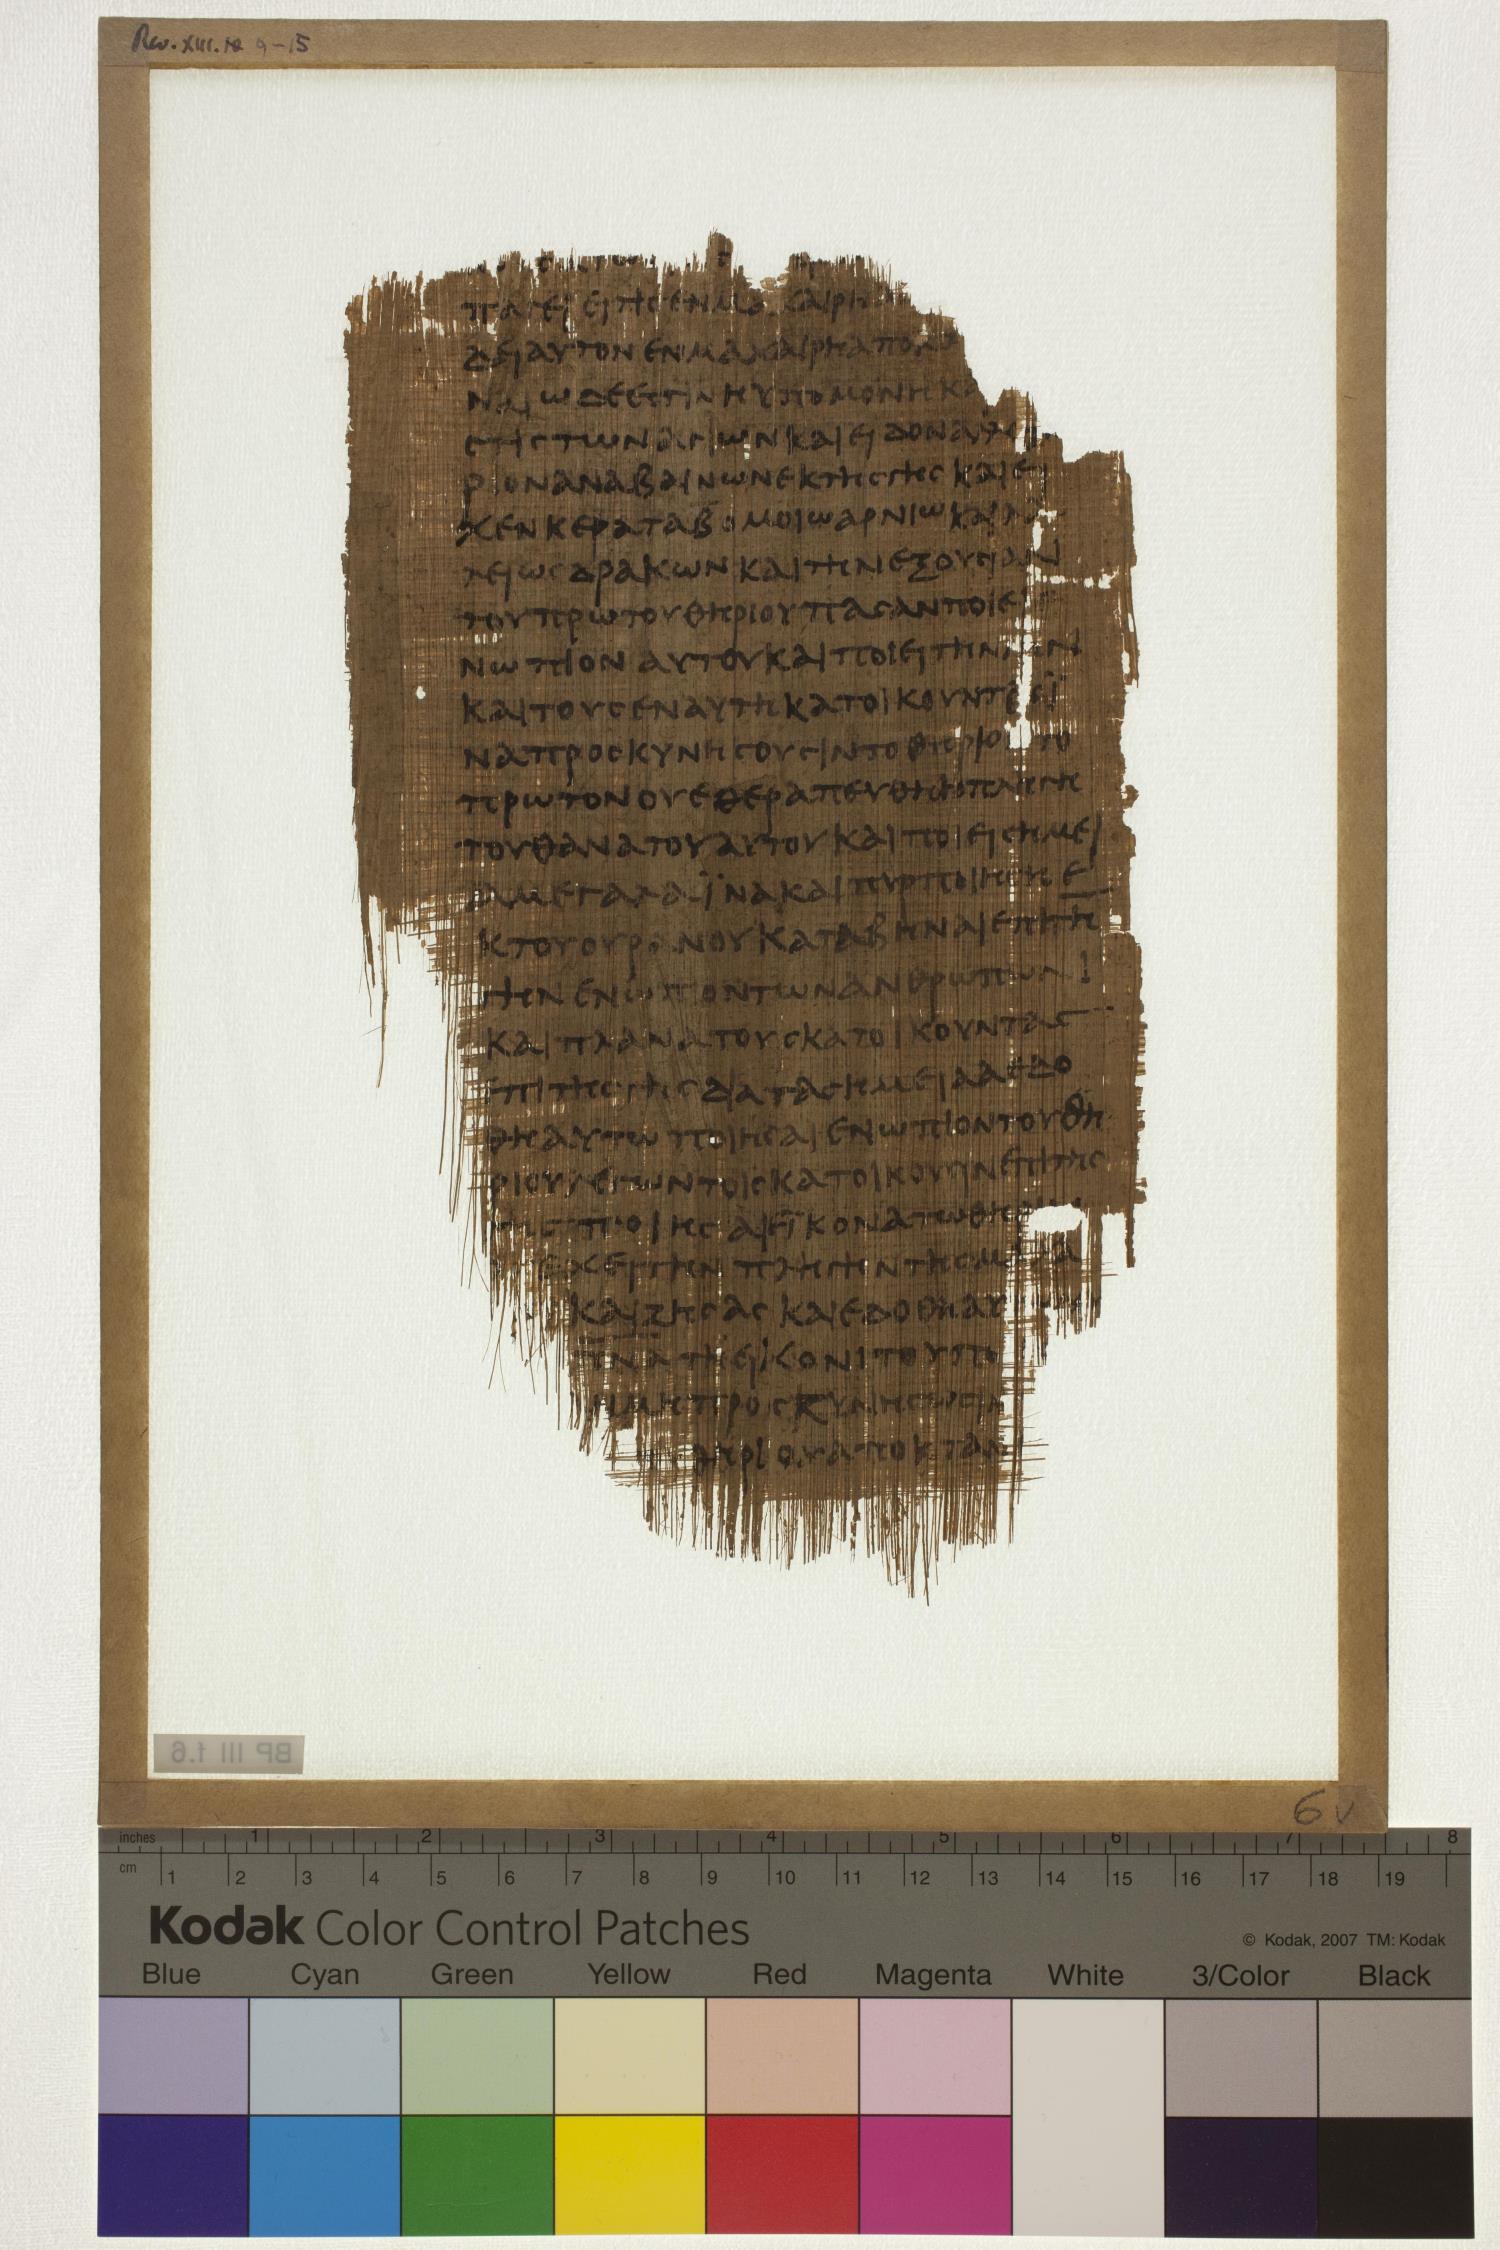 Rev. XIII. 9-15
παγει ει της εν μα καιρη
δει αυτον εν μαχαιρη αποκ
ναι ωδε εστιν η υπομονη κα
στις των αγιων και ειδον α θη
ριον αναβαινων εκ της γης και ει
χεν κερατα β ομοιω αρνιω και
λει ως δρακων και την εξουσιαν
του πρωτου θηριου πασαν ποιει
νωπιον αυτου και ποιει την γην
και τους εν αυτη κατοικουντας ϊ
να προσκυνησουσιν το θηριον το
πρωτον ου εθεραπευθη η πληγη
του θανατου αυτου και ποιει σημει
α μεγαλα ϊνα και πυρ ποιηση ε
κ του ουρανου καταβηναι επι τη
γην ενωπιον των ανθρωπων
και πλανα τους κατοικουντας
επι της γης δια τα σημεια α εδο
θη αυτω ποιησαι ενωπιον του θη
ριου λεγων τοις κατοικουσιν επι της
γης ποιησαι εικονα τω θηρι
εχει την πληγην της μα
και ζησας και εδοθη αυ
ϊνα τη εικονι του
μη προσκυνησωσιν
θηριον αποκταν
BP III 1.6
6 v
inches 1 2 3 4 5 6 7 8
cm 1 2 3 4 5 6 7 8 9 10 11 12 13 14 15 16 17 18 19
Kodak Color Control Patches
© Kodak, 2007 TM: Kodak
Blue Cyan Green Yellow Red Magenta White 3/Color Black